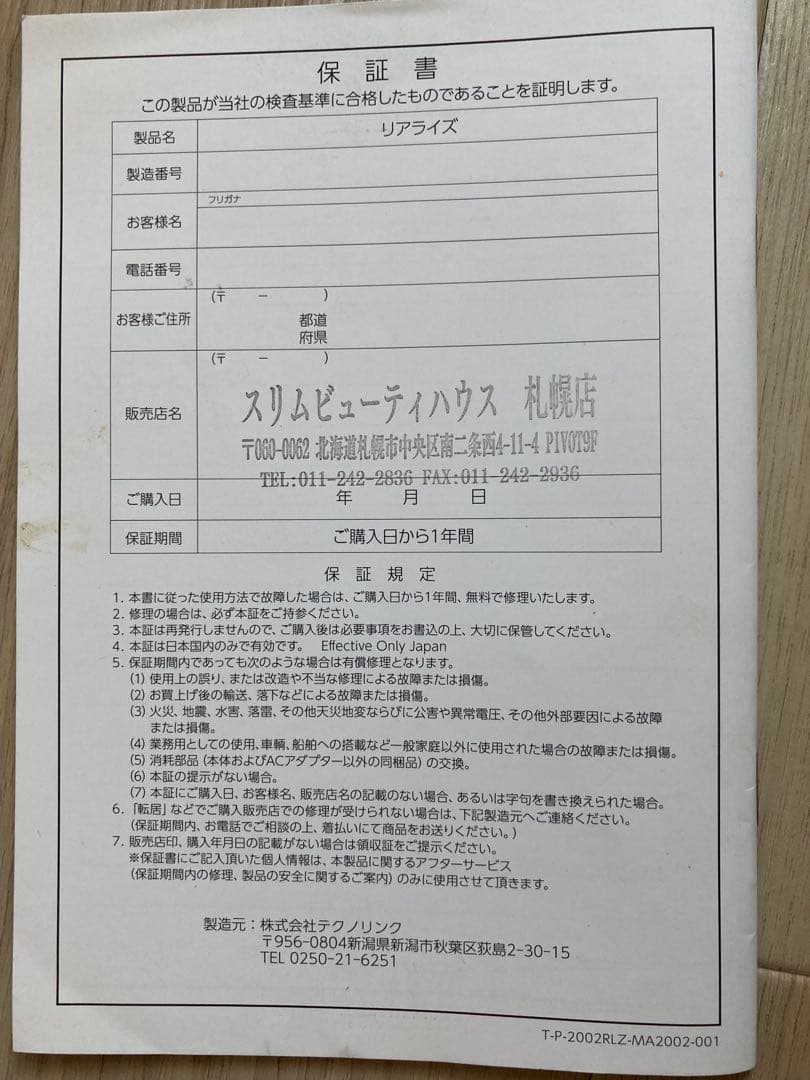 保証書
この製品が当社の検査基準に合格したものであることを証明します。
製品名 リアライズ
製造番号
お客様名 フリガナ
電話番号
お客様ご住所 (〒 － )
都道
府県
販売店名 (〒 － )
スリムビューティハウス 札幌店
〒060-0062 北海道札幌市中央区南二条西4-11-4 PIVOT9F
TEL:011-242-2836 FAX:011-242-2936
ご購入日 年 月 日
保証期間 ご購入日から1年間
保証規定
1. 本書に従った使用方法で故障した場合は、ご購入日から1年間、無料で修理いたします。
2. 修理の場合は、必ず本証をご持参ください。
3. 本証は再発行しませんので、ご購入後は必要事項をお書込の上、大切に保管してください。
4. 本証は日本国内のみで有効です。 Effective Only Japan
5. 保証期間内であっても次のような場合は有償修理となります。
(1) 使用上の誤り、または改造や不当な修理による故障または損傷。
(2) お買上げ後の輸送、落下などによる故障または損傷。
(3) 火災、地震、水害、落雷、その他天災地変ならびに公害や異常電圧、その他外部要因による故障
または損傷。
(4) 業務用としての使用、車輌、船舶への搭載など一般家庭以外に使用された場合の故障または損傷。
(5) 消耗部品（本体およびACアダプター以外の同梱品）の交換。
(6) 本証の提示がない場合。
(7) 本証にご購入日、お客様名、販売店名の記載のない場合、あるいは字句を書き換えられた場合。
6. 「転居」などでご購入販売店での修理が受けられない場合は、下記製造元へご連絡ください。
（保証期間内、お電話でご相談の上、着払いにて商品をお送りください。）
7. 販売店印、購入年月日の記載がない場合は領収証をご提示ください。
※保証書にご記入頂いた個人情報は、本製品に関するアフターサービス
（保証期間内の修理、製品の安全に関するご案内）のみに使用させて頂きます。
製造元：株式会社テクノリンク
〒956-0804新潟県新潟市秋葉区荻島2-30-15
TEL 0250-21-6251
T-P-2002RLZ-MA2002-001